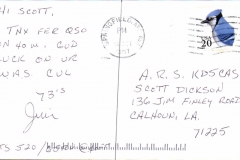 HI SCOTT,
TNX FER QSO
ON 40M. GUD
LUCK ON UR
WAS CUL
73'S
Jim
20
A.R.S. KD5CAS
SCOTT DICKSON
136 JIM FINLEY ROAD
CALHOUN, LA.
71225